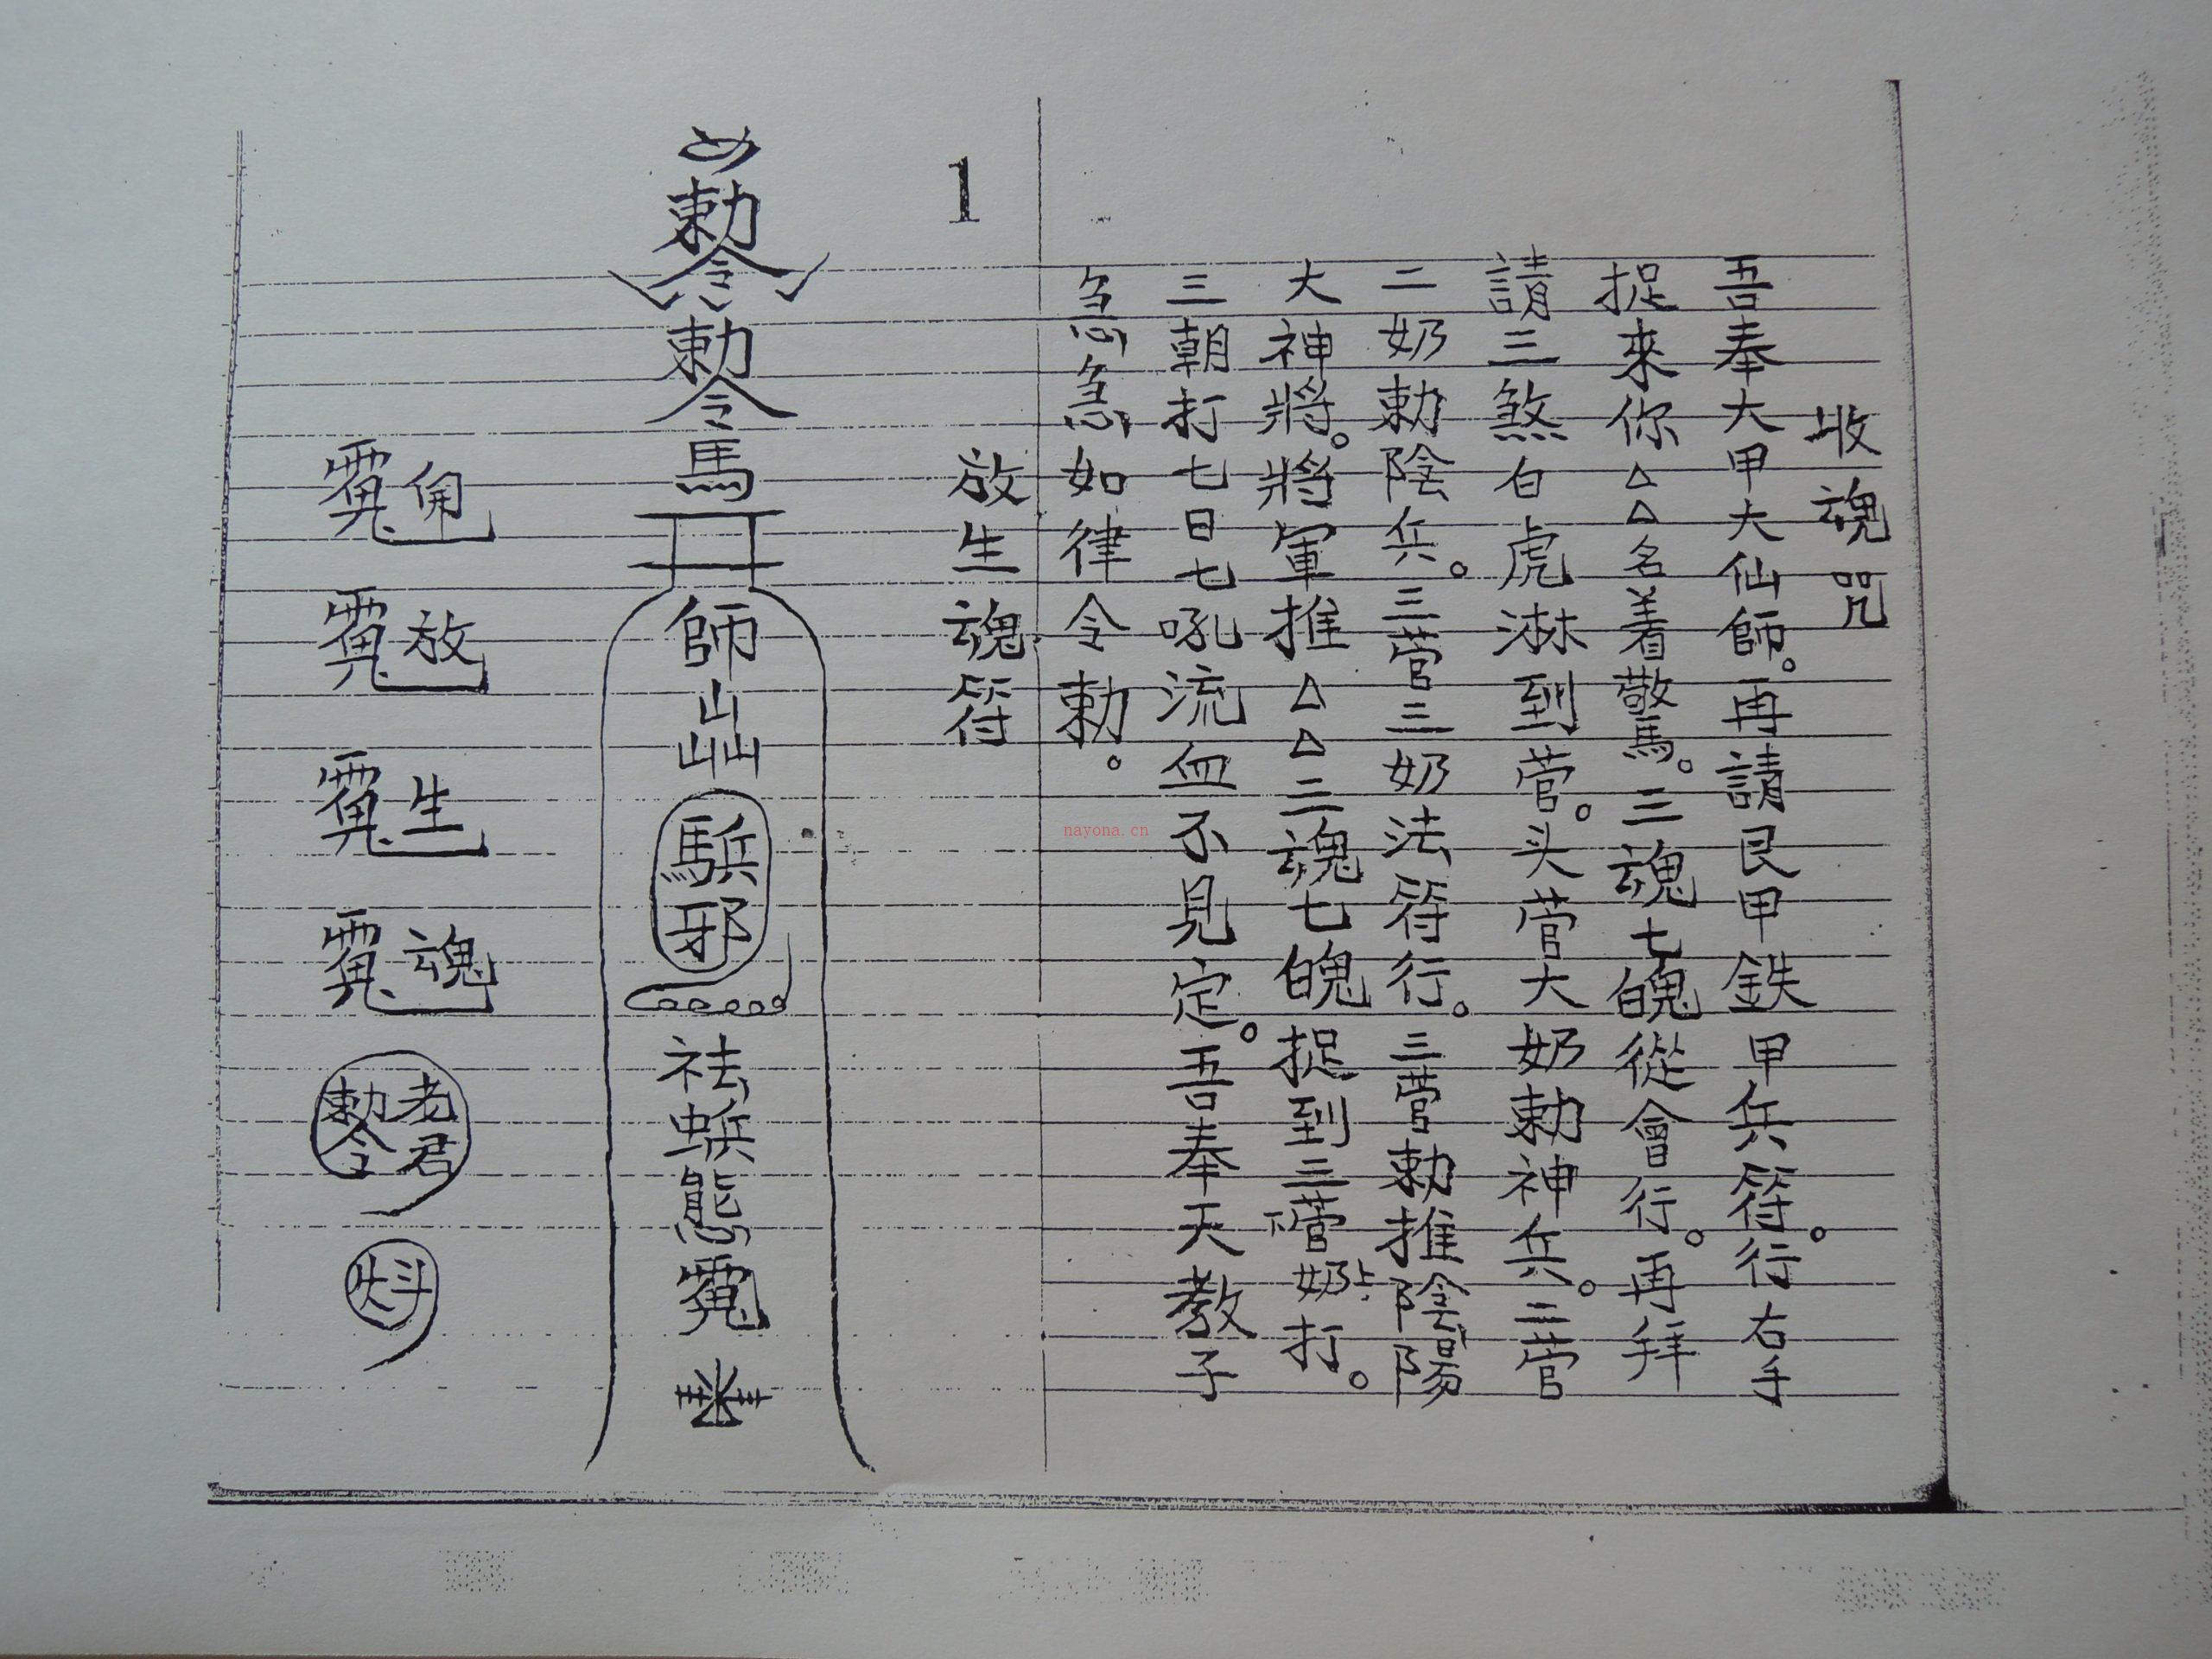 收魂咒
吾奉大甲大仙師。再請良甲鉄甲兵符。行右手
捉來你△△名着驚。三魂七魄從會行。再拜
請三煞白虎淋到菅。头菅大奶勅神兵。二菅
二奶勅陰兵。三菅三奶法符行。三菅勅推陰陽
大神將。將軍推△△三魂七魄捉到三菅奶打。
三朝打七日七吼流血不見定。吾奉天教子
急急如律令勅。
1
放生魂符
勅令
勅令
馬
師
邪
祛
態
放
生
魂
老君
勅令
nayona.cn